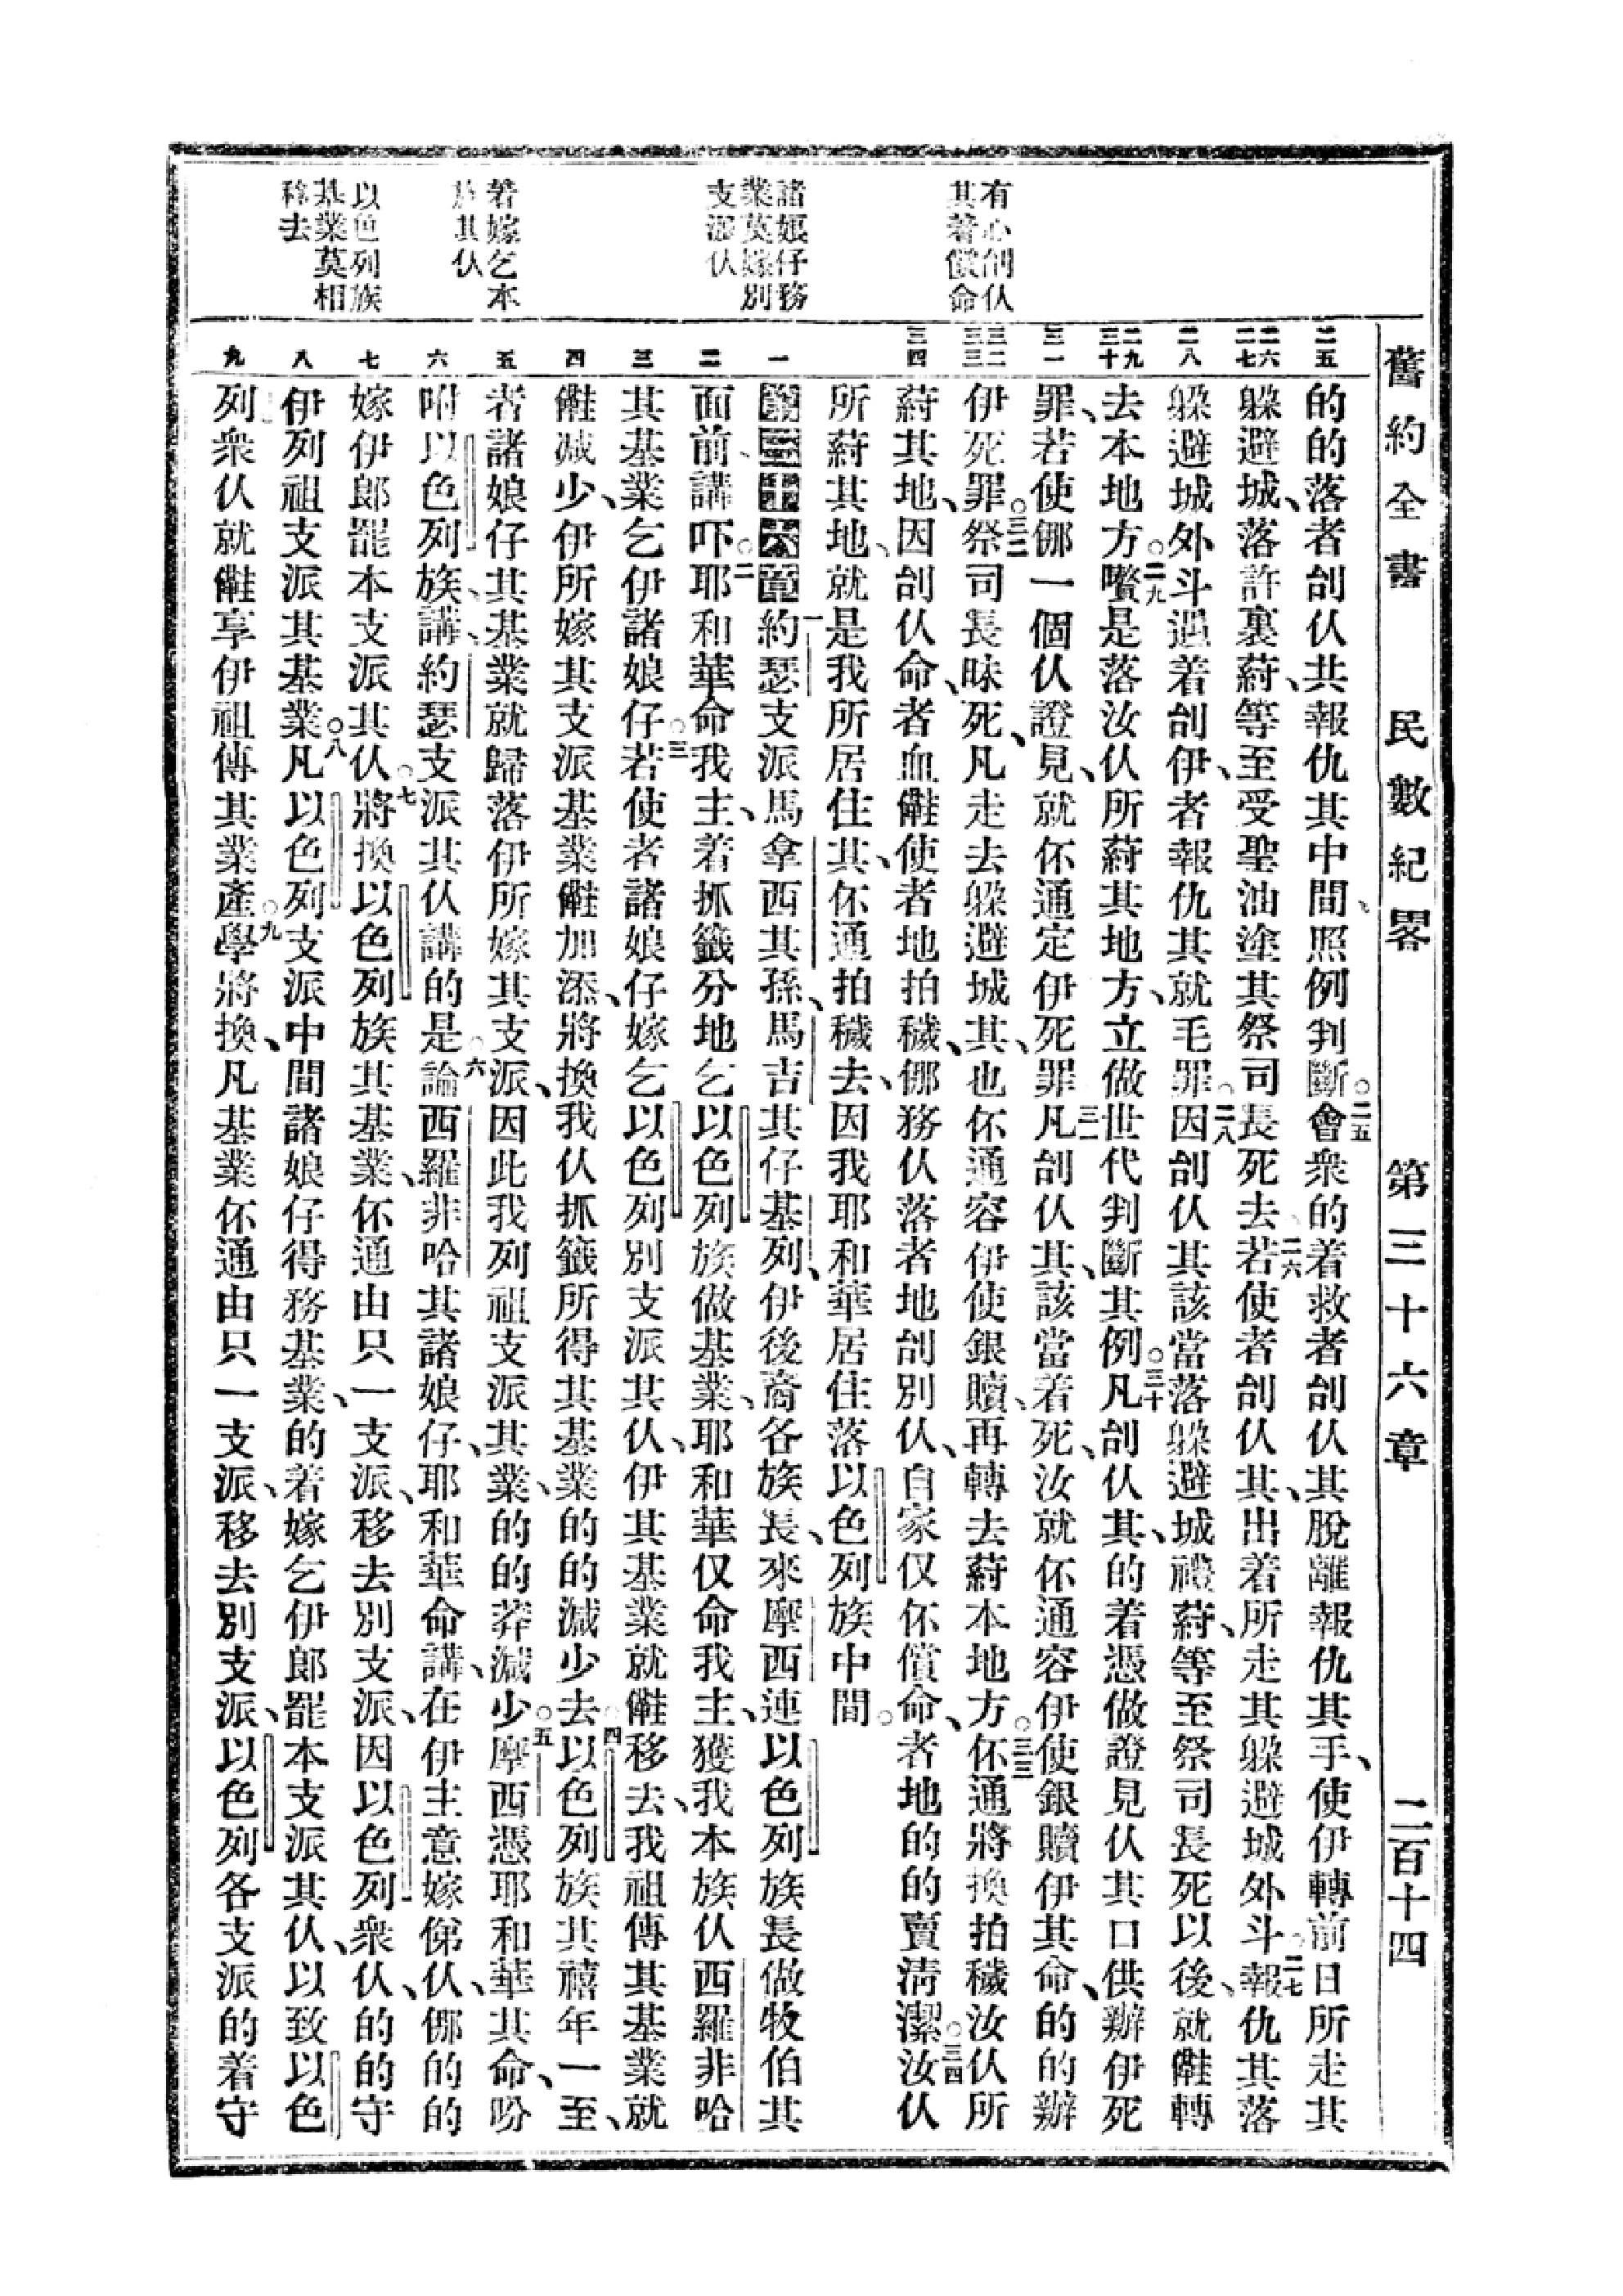 舊約全書 民數紀畧 第三十六章 二百十四
有心刣仈
其著償命
諸娘仔務
業莫嫁別
支派仈
著嫁乞本
其仈
以色列族
基業莫相
移去
二五
二六
二七
二八
二九
三十
三一
三二
三三
三四
一
二
三
四
五
六
七
八
九
的的落者刣仈共報仇其中間、照例判斷。二五會衆的着救者刣仈其脫離報仇其手、使伊轉前日所走其
躲避城、落許裏䓁、等至受聖油塗其祭司長死去、二六若使者刣仈其、出着所走其躲避城外斗、二七報仇其落
躲避城外斗遇着刣伊、者報仇其就毛罪。二八因刣仈其該當落躲避城裡䓁、等至祭司長死以後、就𣍐轉
去本地方。二九嚽是落汝仈所䓁其地方、立做世代判斷其例。三十凡刣仈其、的着憑做證見仈其口供辦伊死
罪、若使㑚一個仈證見、就伓通定伊死罪。三一凡刣仈其、該當着死、汝就伓通容伊使銀贖伊其命、的的辦
伊死罪。三二祭司長昧死、凡走去躲避城其、也伓通容伊使銀贖、再轉去䓁本地方。三三伓通將換拍穢汝仈所
䓁其地、因刣仈命、者血𣍐使者地拍穢、㑚務仈落者地刣別仈、自家仅伓償命、者地的的賣淸潔。三四汝仈
所䓁其地、就是我所居住其、伓通拍穢去、因我耶和華居住落以色列族中間。
第三十六章 一約瑟支派馬拿西其孫、馬吉其仔基列、伊後裔各族長、來摩西連以色列族長做牧伯其
面前講吓。二耶和華命我主、着抓籤分地乞以色列族做基業、耶和華仅命我主、獲我本族仈西羅非哈
其基業、乞伊諸娘仔。三若使者諸娘仔嫁乞以色列別支派其仈、伊其基業就𣍐移去、我祖傳其基業就
𣍐減少、伊所嫁其支派基業𣍐加添、將換我仈抓籤所得其基業的的減少去。四以色列族其禧年一至、
者諸娘仔其基業就歸落伊所嫁其支派、因此我列祖支派其業、的的莽減少。五摩西憑耶和華其命、吩
咐以色列族、講、約瑟支派其仈講的是。六論西羅非哈其諸娘仔、耶和華命講、在伊主意嫁俤仈、㑚的的
嫁伊郎罷本支派其仈。七將換以色列族其基業、伓通由只一支派、移去別支派、因以色列衆仈、的的守
伊列祖支派其基業。八凡以色列支派中間諸娘仔得務基業、的着嫁乞伊郎罷本支派其仈、以致以色
列衆仈就𣍐享伊祖傳其業產。九學將換、凡基業伓通由只一支派、移去別支派、以色列各支派的着守